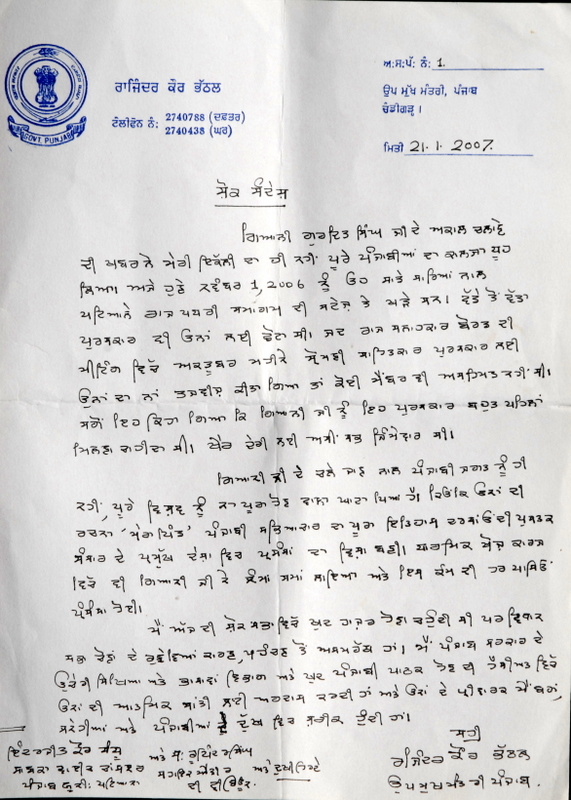 ਅ:ਸ:ਪੱ: ਨੰ: 1.
ਰਾਜਿੰਦਰ ਕੌਰ ਭੱਠਲ
ਉਪ ਮੁੱਖ ਮੰਤਰੀ, ਪੰਜਾਬ
ਚੰਡੀਗੜ੍ਹ।
ਟੈਲੀਫੋਨ ਨੰ: 2740788 (ਦਫ਼ਤਰ)
2740438 (ਘਰ)
GOVT. PUNJAB
ਮਿਤੀ 21.1.2007.
ਸ਼ੋਕ ਸੰਦੇਸ਼
ਗਿਆਨੀ ਗੁਰਦਿਤ ਸਿੰਘ ਜੀ ਦੇ ਅਕਾਲ ਚਲਾਣੇ
ਦੀ ਖ਼ਬਰ ਨੇ ਮੇਰੀ ਇਕੱਲੀ ਦਾ ਹੀ ਨਹੀਂ ਪੂਰੇ ਪੰਜਾਬੀਆਂ ਦਾ ਕਾਲਜਾ ਧੂਹ
ਲਿਆ। ਅਜੇ ਹੁਣੇ ਨਵੰਬਰ 1, 2006 ਨੂੰ ਉਹ ਸਾਡੇ ਸਾਰਿਆਂ ਨਾਲ
ਪਟਿਆਲੇ ਰਾਜ ਪੱਧਰੀ ਸਮਾਗਮ ਦੀ ਸਟੇਜ ਤੇ ਸਨ। ਵੱਡੇ ਤੋਂ ਵੱਡਾ
ਪੁਰਸਕਾਰ ਵੀ ਉਨਾਂ ਲਈ ਛੋਟਾ ਸੀ। ਜਦ ਰਾਜ ਸਲਾਹਕਾਰ ਬੋਰਡ ਦੀ
ਮੀਟਿੰਗ ਵਿੱਚ ਅਕਤੂਬਰ ਮਹੀਨੇ ਸ਼੍ਰੋਮਣੀ ਸਾਹਿਤਕਾਰ ਪੁਰਸਕਾਰ ਲਈ
ਉਨਾਂ ਦਾ ਨਾਂ ਤਜ਼ਵੀਜ਼ ਕੀਤਾ ਗਿਆ ਤਾਂ ਕੋਈ ਮੈਂਬਰ ਵੀ ਅਸਹਿਮਤ ਨਹੀਂ ਸੀ।
ਸਗੋਂ ਇਹ ਕਿਹਾ ਗਿਆ ਕਿ ਗਿਆਨੀ ਜੀ ਨੂੰ ਇਹ ਪੁਰਸਕਾਰ ਬਹੁਤ ਪਹਿਲਾਂ
ਮਿਲਣਾ ਚਾਹੀਦਾ ਸੀ। ਖੈਰ ਦੇਰੀ ਲਈ ਅਸੀਂ ਸਭ ਜ਼ਿੰਮੇਵਾਰ ਸੀ।
ਗਿਆਨੀ ਜੀ ਦੇ ਚਲੇ ਜਾਣ ਨਾਲ ਪੰਜਾਬੀ ਜਗਤ ਨੂੰ ਹੀ
ਨਹੀਂ, ਪੂਰੇ ਵਿਸ਼ਵ ਨੂੰ ਨਾ ਪੂਰਾ ਹੋਣ ਵਾਲਾ ਘਾਟਾ ਪਿਆ ਹੈ। ਕਿਉਂਕਿ ਉਨਾਂ ਦੀ
ਰਚਨਾ 'ਮੇਰਾ ਪਿੰਡ' ਪੰਜਾਬੀ ਸਭਿਆਚਾਰ ਦਾ ਪੂਰਾ ਇਤਿਹਾਸ ਦਰਸਾਉਂਦੀ ਪੁਸਤਕ
ਸੰਸਾਰ ਦੇ ਪ੍ਰਮੁੱਖ ਦੇਸ਼ਾਂ ਵਿਚ ਪ੍ਰਸੰਸਾ ਦਾ ਵਿਸ਼ਾ ਬਣੀ। ਧਾਰਮਿਕ ਖੋਜ ਕਾਰਜ
ਵਿੱਚ ਵੀ ਗਿਆਨੀ ਜੀ ਨੇ ਲੰਮਾ ਸਮਾਂ ਲਾਇਆ ਅਤੇ ਇਸ ਕੰਮ ਦੀ ਹਰ ਪਾਸਿਓਂ
ਪ੍ਰਸੰਸਾ ਹੋਈ।
ਮੈਂ ਅੱਜ ਦੀ ਸ਼ੋਕ ਸਭਾ ਵਿੱਚ ਖੁਦ ਹਾਜ਼ਰ ਹੋਣਾ ਚਾਹੁੰਦੀ ਸੀ ਪਰ ਵਿਧਾਨ
ਸਭਾ ਚੋਣਾਂ ਦੇ ਰੁਝੇਵਿਆਂ ਕਾਰਨ, ਪਹੁੰਚਣ ਤੋਂ ਅਸਮਰੱਥ ਹਾਂ। ਮੈਂ ਪੰਜਾਬ ਸਰਕਾਰ ਦੇ
ਉਚੇਰੀ ਸਿੱਖਿਆ ਅਤੇ ਭਾਸ਼ਾਵਾਂ ਵਿਭਾਗ ਅਤੇ ਖੁਦ ਪੰਜਾਬੀ ਪਾਠਕ ਹੋਣ ਦੀ ਹੈਸੀਅਤ ਵਿੱਚ
ਉਨਾਂ ਦੀ ਆਤਮਿਕ ਸ਼ਾਂਤੀ ਲਈ ਅਰਦਾਸ ਕਰਦੀ ਹਾਂ ਅਤੇ ਉਨਾਂ ਦੇ ਪਰੀਵਾਰਕ ਮੈਂਬਰਾਂ,
ਸਨੇਹੀਆਂ ਅਤੇ ਪੰਜਾਬੀਆਂ ਦੇ ਦੁੱਖ ਵਿਚ ਸ਼ਰੀਕ ਹੁੰਦੀ ਹਾਂ।
ਸਹੀ
ਰਾਜਿੰਦਰ ਕੌਰ ਭੱਠਲ
ਉਪ ਮੁਖ ਮੰਤਰੀ ਪੰਜਾਬ.
ਇੰਦਰਜੀਤ ਕੌਰ ਸੰਧੂ
ਸਾਬਕਾ ਵਾਈਸ ਚਾਂਸਲਰ
ਪੰਜਾਬੀ ਯੂਨੀ: ਪਟਿਆਲਾ
ਅਤੇ ਸ: ਰੂਪਿੰਦਰ ਸਿੰਘ